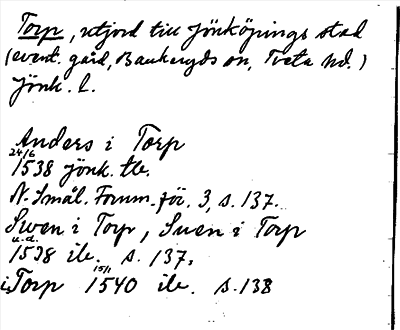 Torp, utjord till Jönköpings stad
(event. gård, Bankeryds sn, Tveta hd.)
Jönk. l.
Anders i Torp
24/6
1538 Jönk. tb.
N. Smål. Fornm.för. 3, s. 137.
Swen i Torp, Suen i Torp
u.a.
1538 ib. s. 137.
i Torp 15/1 1540 ib. s. 138